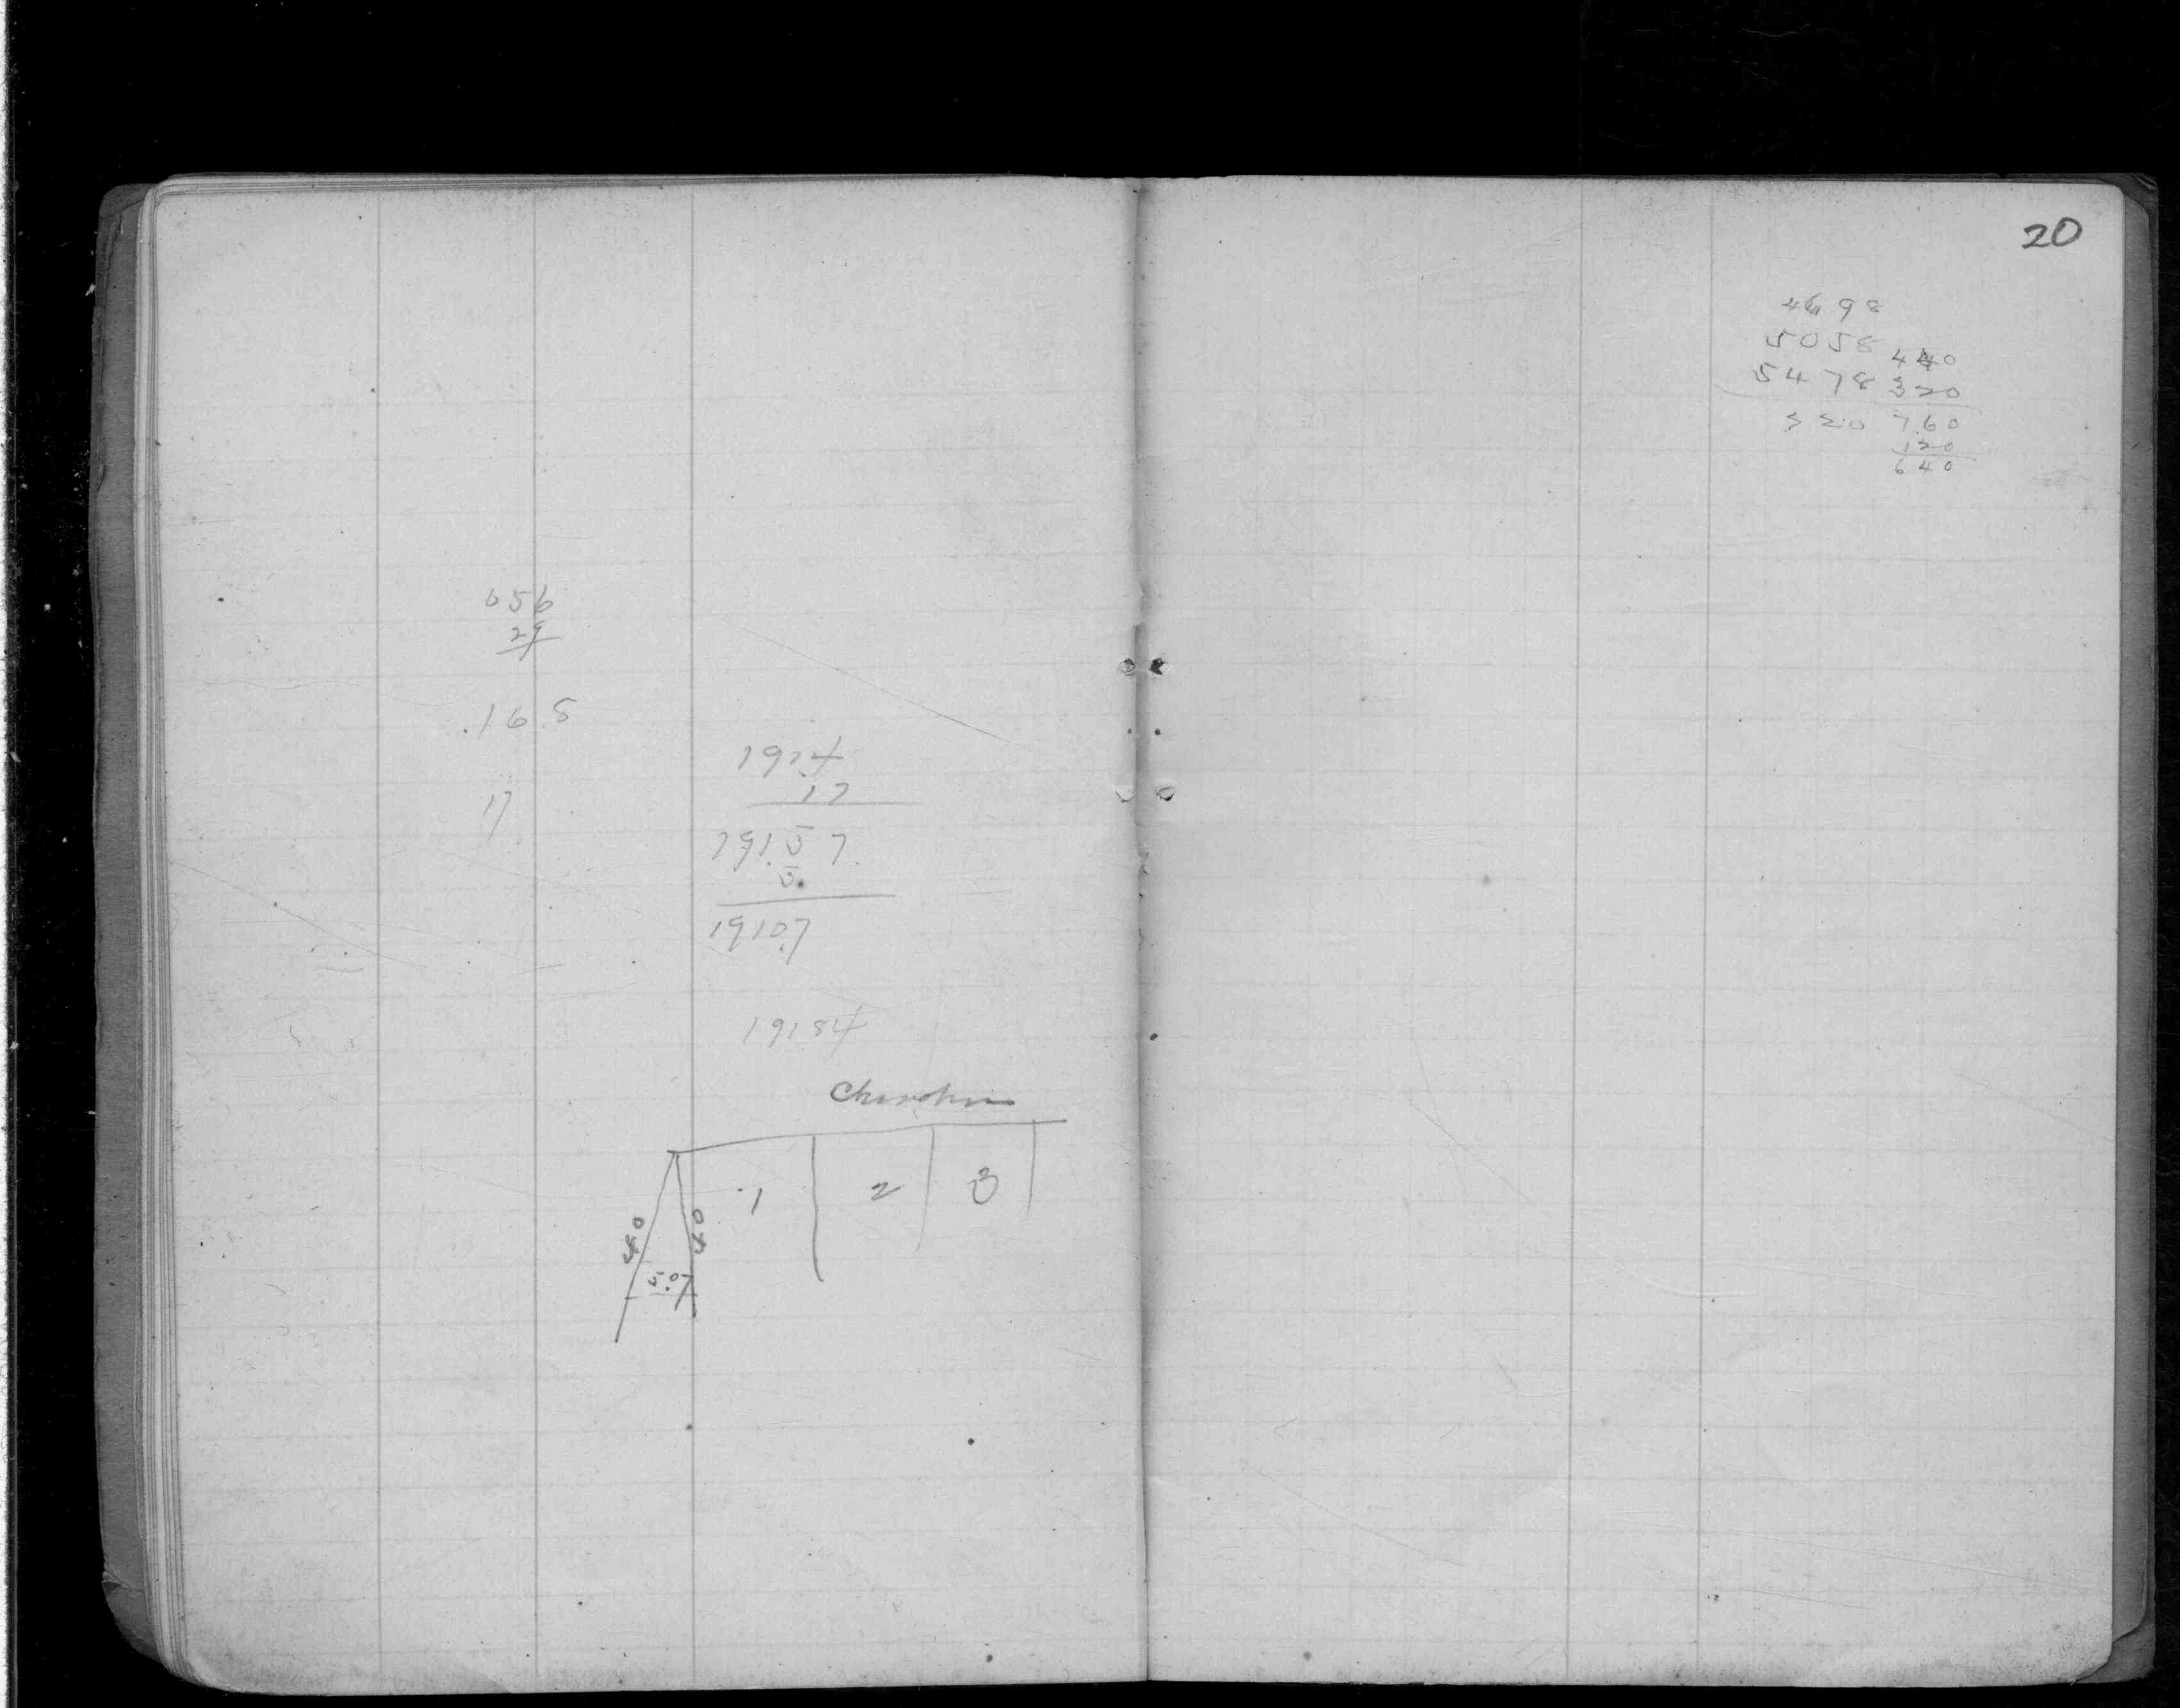 056
29
.168
17
1924
17
191.57.
5.
1910.7
19184
1 2 3
40 40
5.07
20
4698
5058 440
5478 320
320 760
120
640